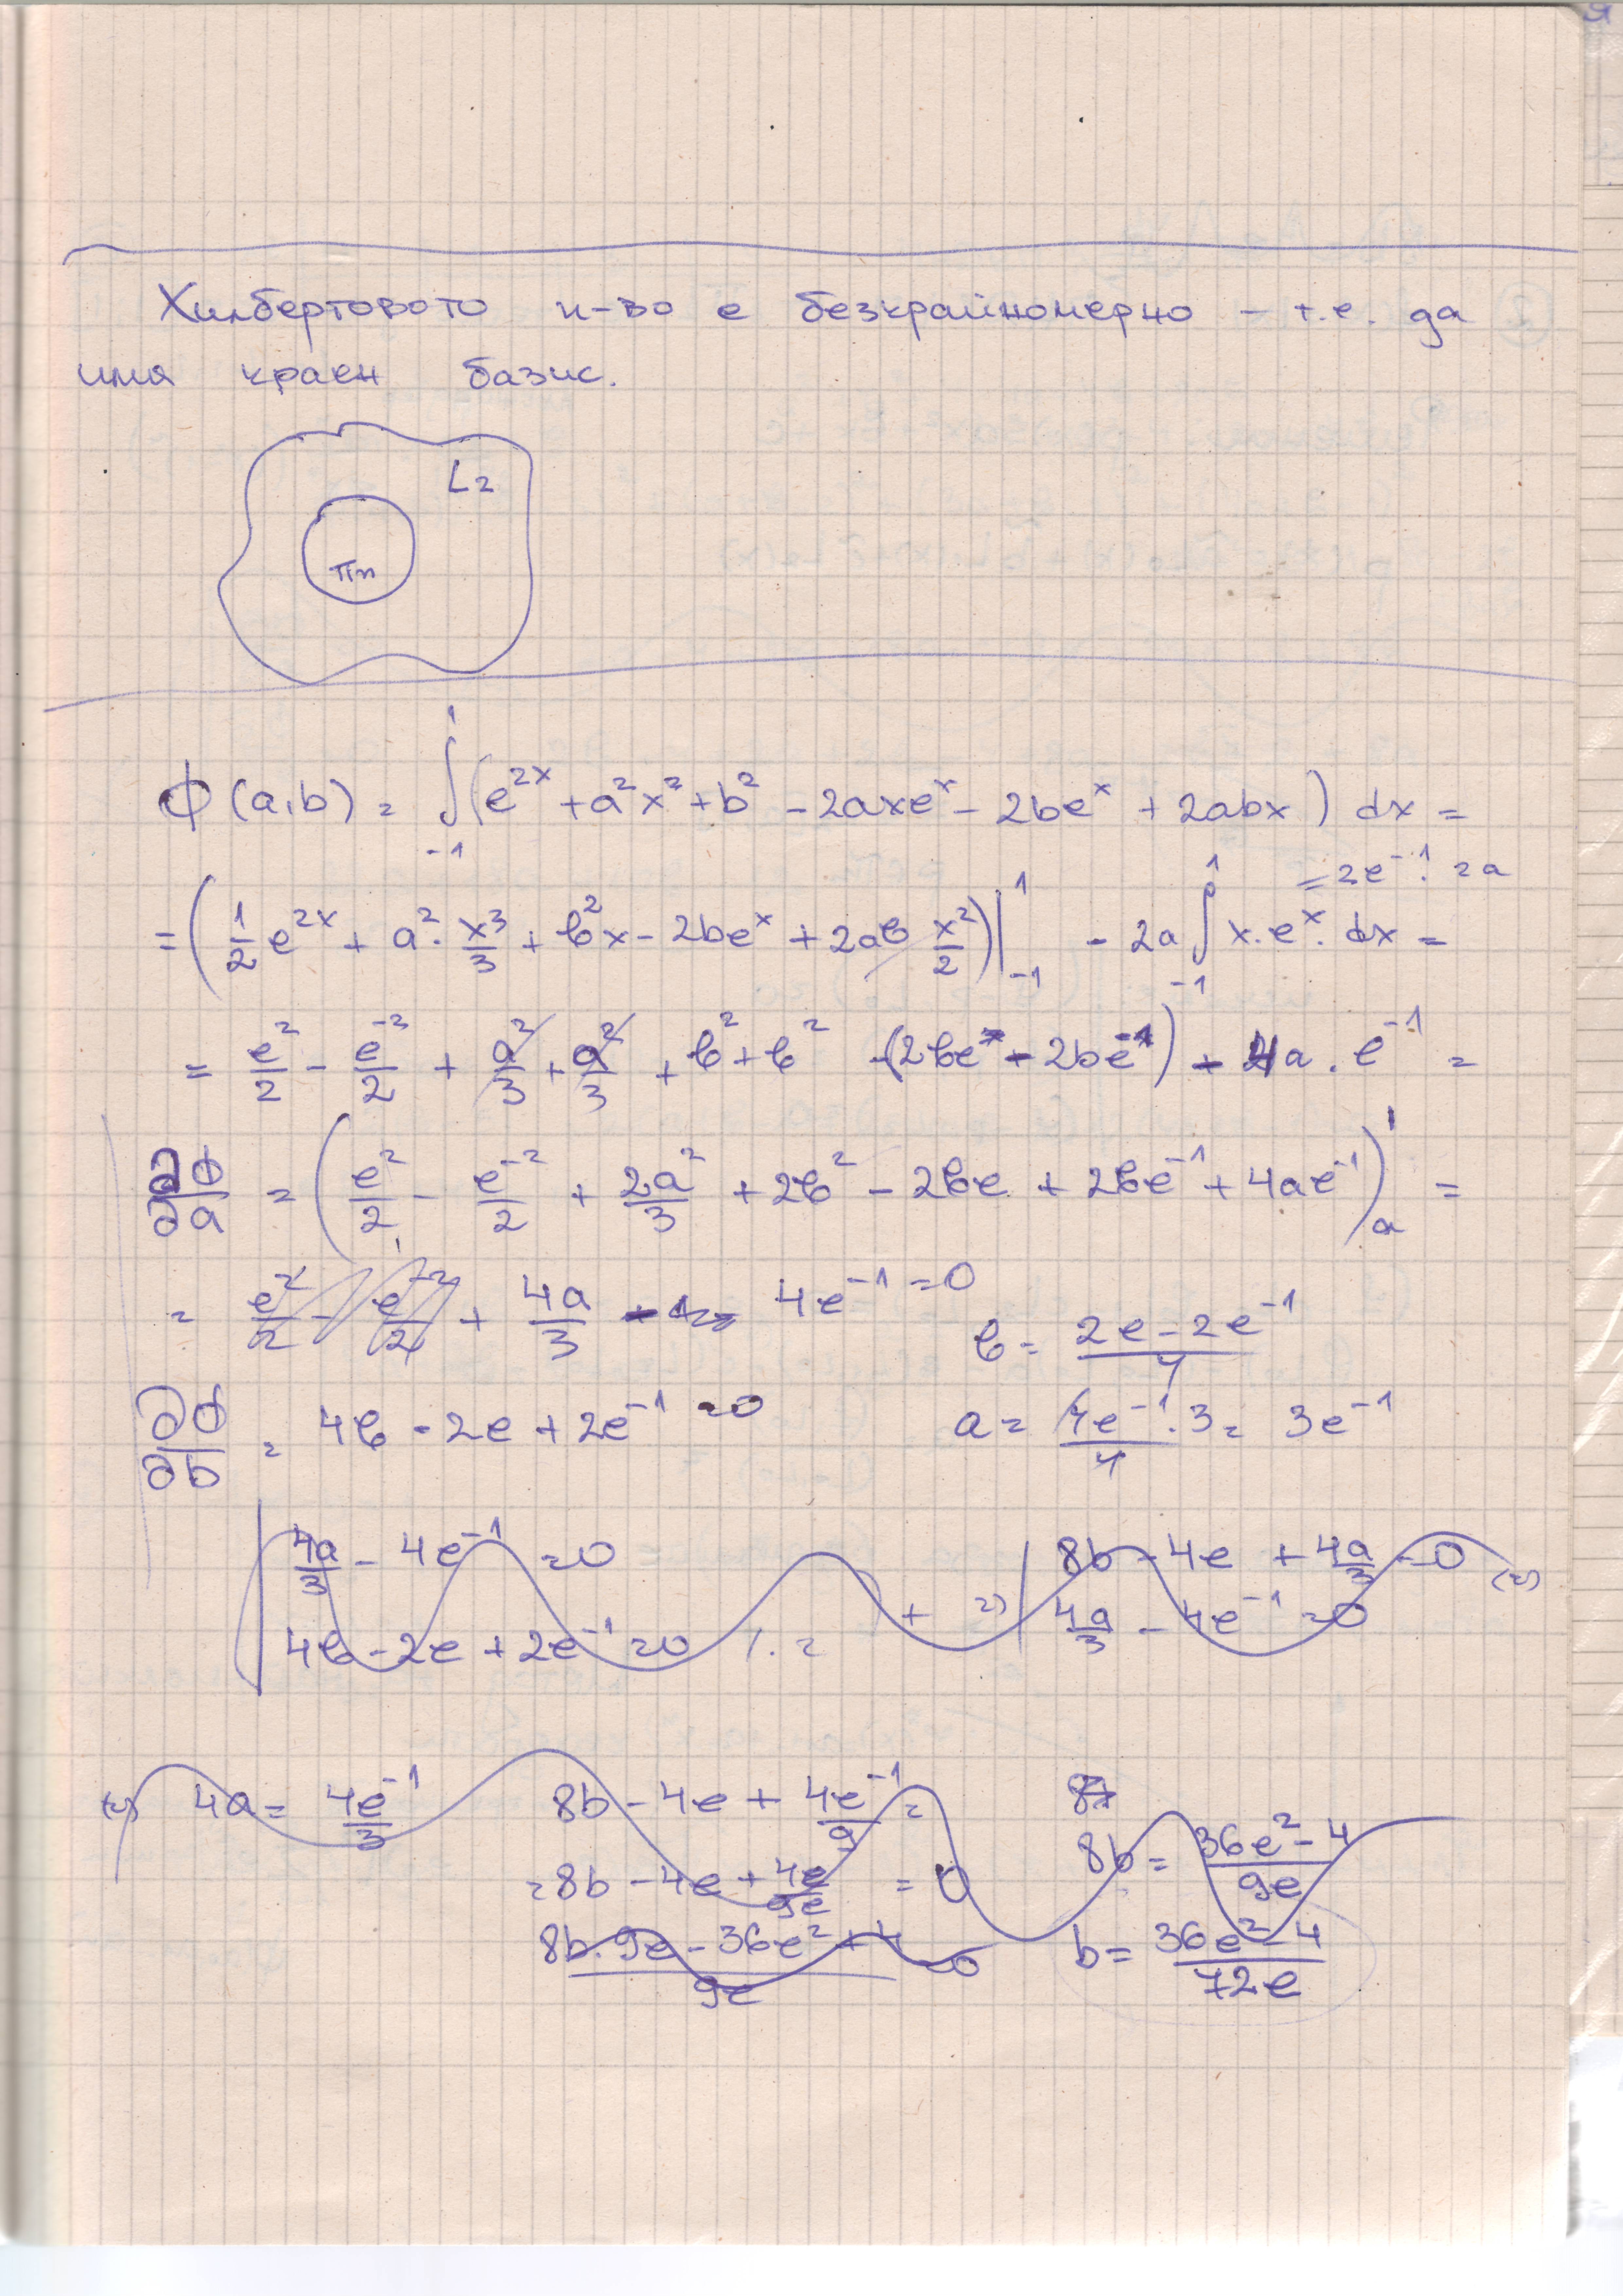 Хилбертовото п-во е безкрайномерно – т.е. да
има краен базис.
L₂
πn
ϕ(a,b) = ∫₋₁¹ (e^{2x} + a²x² + b² - 2axe^x - 2be^x + 2abx) dx =
= 2e^{-1} . 2a
= (1/2 e^{2x} + a² . x³/3 + b²x - 2be^x + 2ab x²/2)|₋₁¹ - 2a ∫₋₁¹ x.e^x.dx =
= e²/2 - e^{-2}/2 + a²/3 + a²/3 + b² + b² -(2be - 2be^{-1}) - 4a . e^{-1} =
∂ϕ/∂a = (e²/2 - e^{-2}/2 + 2a²/3 + 2b² - 2be + 2be^{-1} + 4ae^{-1})'ₐ =
= e²/2 - e^{-2}/2 + 4a/3 - 4e^{-1} = 0
b = (2e - 2e^{-1})/4
∂ϕ/∂b = 4b - 2e + 2e^{-1} = 0
a = 4e^{-1}/4 . 3 = 3e^{-1}
| 4a/3 - 4e^{-1} = 0
4b - 2e + 2e^{-1} = 0 /. 2
+ =>
| 8b - 4e + 4a/3 = 0 (=>)
4a/3 - 4e^{-1} = 0
(=>) 4a = 4e^{-1}/3
8b - 4e + 4e^{-1}/9 =
= 8b - 4e + 4e/9e = 0
(8b.9e - 36e² + 4)/9e = 0
8b = (36e² - 4)/9e
b = (36e² - 4)/72e